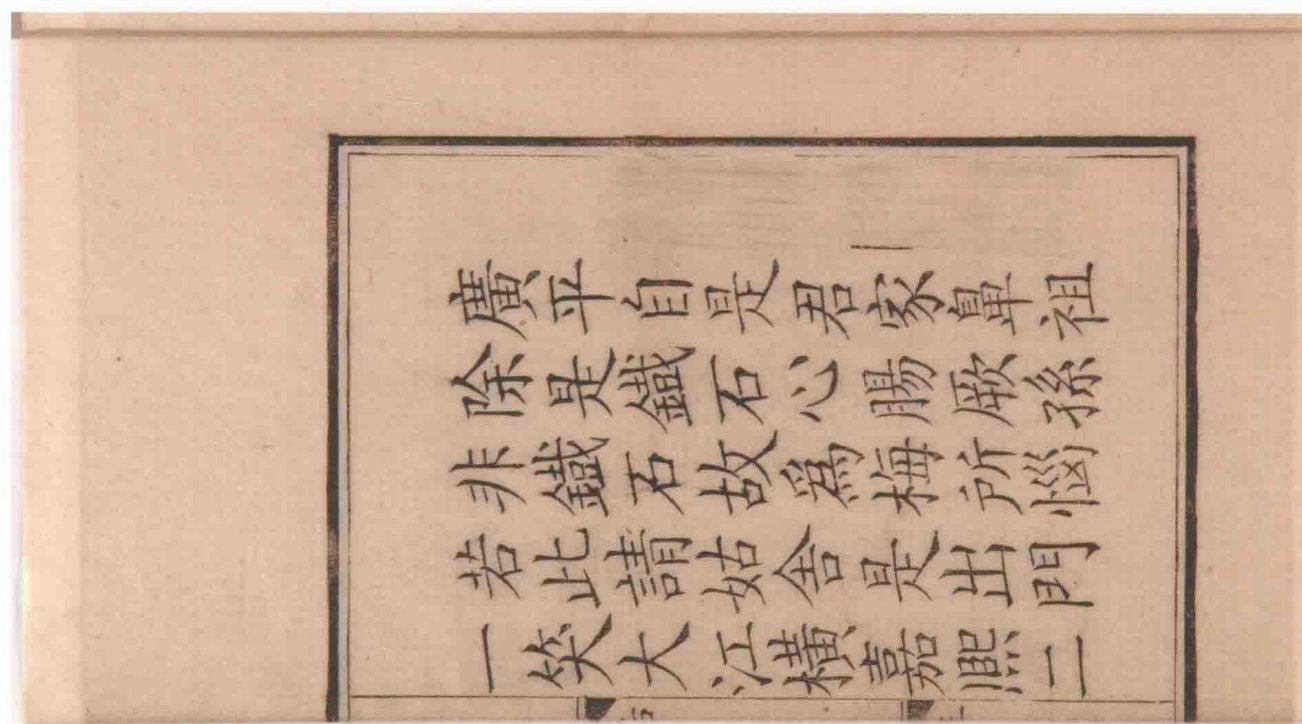 廣平自是君家鼻祖
除是鐵石心腸厥孫
非鐵石故爲梅所惱
若此請姑舍是出門
一笑大江橫嘉熙二